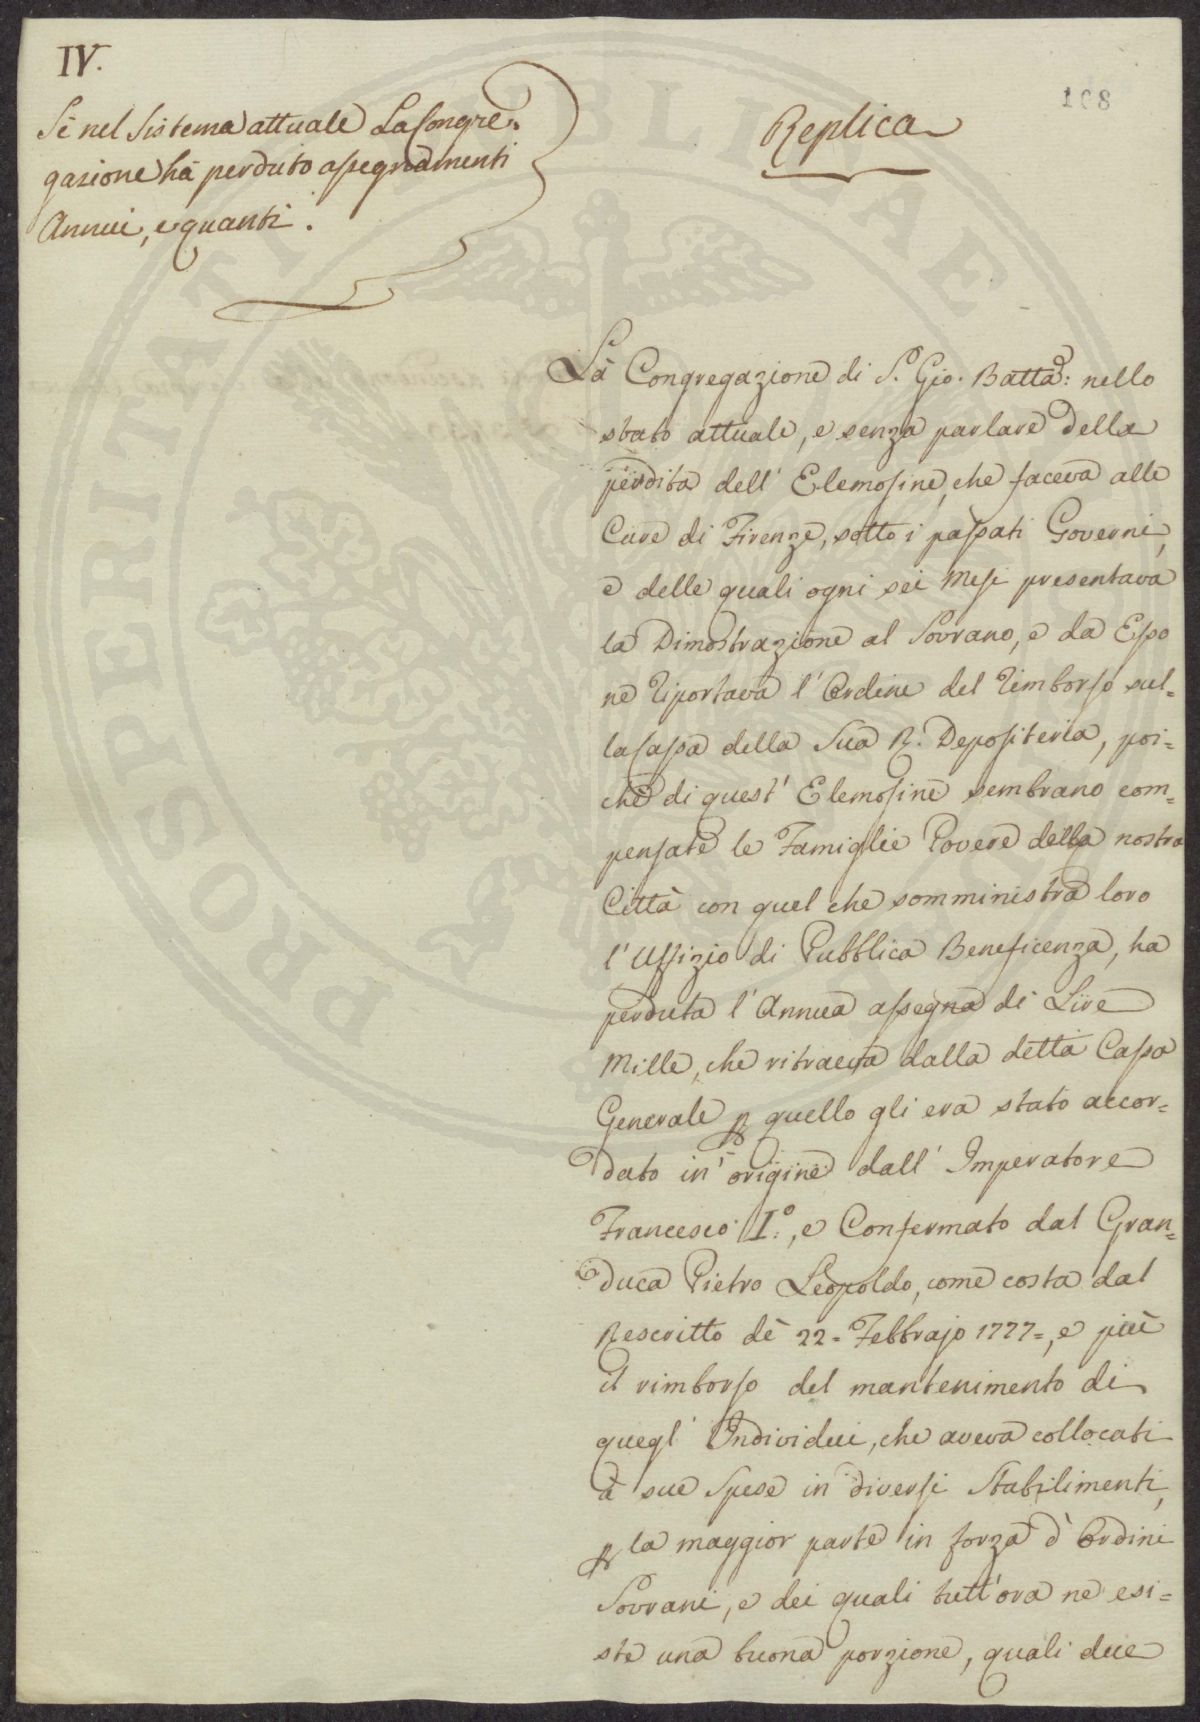 IV.
Se nel Sistema attuale La Congre=
gazione ha perduto assegnamenti
Annui, e quanti.
108
Replica
La Congregazione di S. Gio. Batta: nello
stato attuale, e senza parlare della
perdita dell' Elemosine, che faceva alle
Cure di Firenze, sotto i passati Governi,
e delle quali ogni sei Mesi presentava
la Dimostrazione al Sovrano, e da Esso
ne riportava l' Ordine del rimborso sul=
la Cassa della Sua R. Depositeria, poi=
chè di quest' Elemosine sembrano com=
pensate le Famiglie Povere della nostra
Città con quel che somministra loro
l' Uffizio di Pubblica Beneficenza, ha
perduta l' Annua assegna di Lire
Mille, che ritraeva dalla detta Cassa
Generale p quello gli era stato accor=
dato in origine dall' Imperatore
Francesco I.°, e Confermato dal Gran=
Duca Pietro Leopoldo, come costa dal
Rescritto dè 22= Febbrajo 1777=, e più
il rimborso del mantenimento di
quegl' Individui, che aveva collocati
à sue Spese in diversi Stabilimenti,
p la maggior parte in forza d' Ordini
Sovrani, e dei quali tutt'ora ne esi=
ste una buona porzione, quali due
PROSPERITATI PUBLICAE